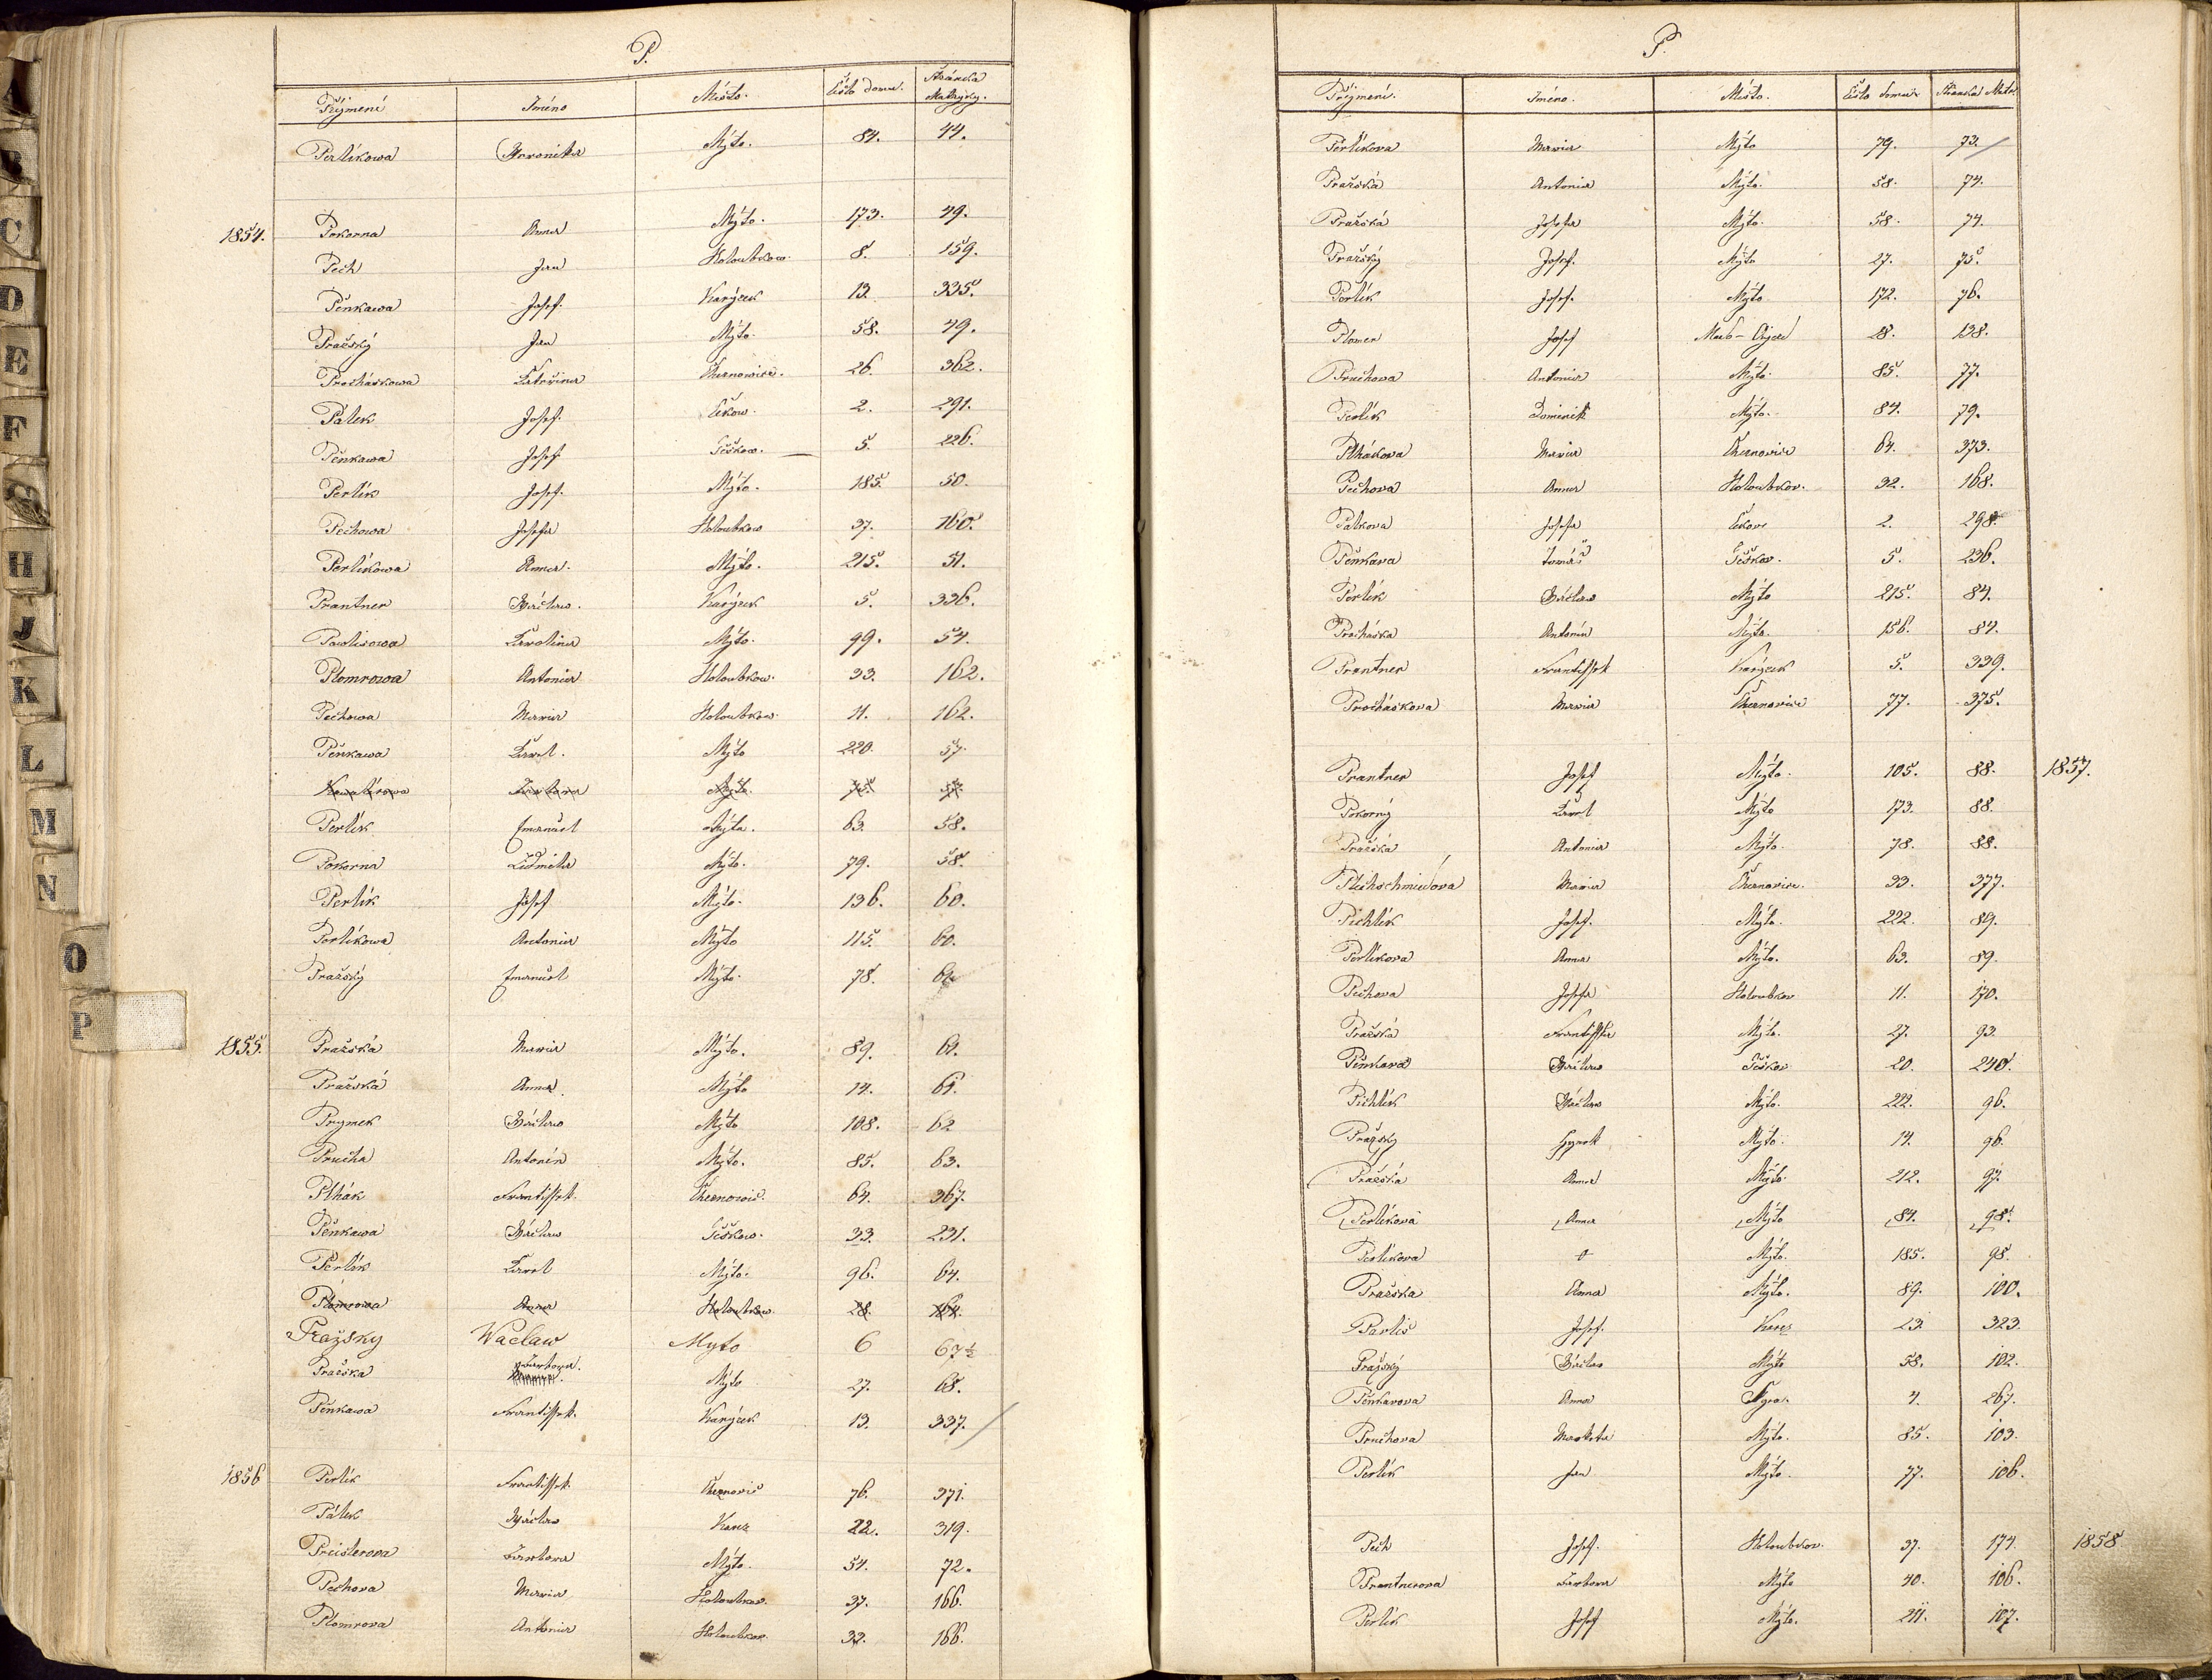 P.
Příjmení Jméno Místo. Číslo domu. Stránka Matryky.
Perlíkowa Weronika Mýto. 84. 44.
1854. Pokorna Anna Mýto. 173. 49.
Pech Jan Holoubkow. 8. 159.
Pěnkawa Josef. Karýzek 13. 335.
Pražský Jan Mýto. 58. 49.
Procháskowa Kateřina Cheznowice. 26. 362.
Pálek Josef. Čekow. 2. 291.
Pěnkawa Josef Těškow. 5. 226.
Perlík Josef. Mýto. 185. 50.
Pechowa Josefa Holoubkow 37. 160.
Perlíkowa Anna. Mýto. 215. 51.
Prantner Wáclaw. Karýzek 5. 336.
Pawlisowa Karolina Mýto. 99. 54.
Plomrowa Antonia Holoubkow. 33. 162.
Pechowa Maria Holoubkow. 11. 162.
Pěnkawa Karel. Mýto 220. 57.
Barbora Mýto. 75. 57.
Perlík Emanuel Mýto. 63. 58.
Pokorna Lidmila Mýto. 79. 58.
Perlík Josef Mýto. 136. 60.
Perlíkowa Antonia Mýto 115. 60.
Pražský Emanuel Mýto. 78.
1855. Pražská Maria Mýto. 89. 61.
Pražská Anna. Mýto 14. 61.
Prymek Wáclaw Mýto 108. 62
Prucha Antonín Mýto. 85. 63.
Plhák Frantissek. Cheznowic. 64. 367.
Pěnkawa Wáclaw Těškow. 33. 231.
Perlík Karel Mýto. 96. 64.
Plomrowa Anna Holoubkow. 28. 164.
Pražsky Waclaw Myto 6 67½
Pražska Barbora. Mýto 27. 68.
Pěnkawa Frantissek. Karýzek 13. 337.
1856 Perlík Frantissek. Cheznovic 76. 371.
Pálek Wáclaw Karez 22. 319.
Preislerova Barbora Mýto. 54. 72.
Pechova Maria Holoubkov. 37. 166.
Plomrova Antonia Holoubkov. 33. 166.
P.
Příjmení. Jméno. Místo. Číslo domu Stránka Matr.
Perlíkova Maria Mýto 79. 73.
Pražská Antonia Mýto. 58. 74.
Pražská Josefa Mýto. 58. 74.
Pražský Josef. Mýto 27. 75.
Perlík Josef. Mýto 172. 76.
Plomer Josef 28. 138.
Pruchova Antonia Mýto. 85. 77.
Perlík Dominik Mýto. 84. 79.
Plhákova Maria Cheznovice 64. 373.
Pechova Anna Holoubkov. 32. 168.
Palkova Josefa Čekov 2. 298.
Pěnkava Tomáš Těškov. 5. 236.
Perlík Wáclaw Mýto 215. 84.
Procháska Antonín Mýto. 156. 84.
Prantner Frantissek Karýzek 5. 339.
Procháskova Maria Cheznovice 77. 375.
Prantner Josef Mýto. 105. 88. 1857.
Pokorný Karel Mýto 173. 88.
Pražská Antonia Mýto. 78. 88.
Plechschmiedova Maria Cheznovice. 33. 377.
Pichlík Josef. Mýto. 222. 89.
Perlíkova Anna Mýto. 63. 89.
Pechova Josefa Holoubkov 11. 170.
Pražská Frantisska Mýto. 27. 93.
Pěnkava Wáclaw Těškov 20. 240.
Pichlík Wáclaw Mýto. 222. 96.
Pražský Hynek Mýto. 14. 96.
Pražská Anna Mýto. 212. 97.
Perlíkova Anna Mýto 84. 98.
Perlíkova Mýto. 185. 98.
Pražska Anna Mýto. 89. 100.
Pavlis Josef. Karez 23. 323.
Pražský Wáclav Mýto 58. 102.
Pěnkavova Anna 4. 267.
Pruchova Markéta Mýto. 85. 103.
Perlík Jan Mýto. 77. 106.
Pech Josef. Holoubkov. 37. 174. 1858
Prantnerova Barbora Mýto 40. 106.
Perlík Josef Mýto. 211. 107.
C
D
E
F
H
J
K
L
M
N
O
P